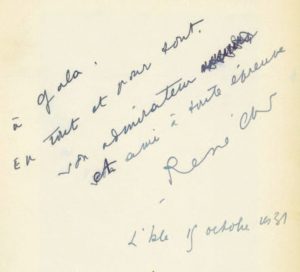 à Gala.
En tout et pour tout.
son admirateur
et ami à toute épreuve
René Char
L'Isle 15 octobre 1931